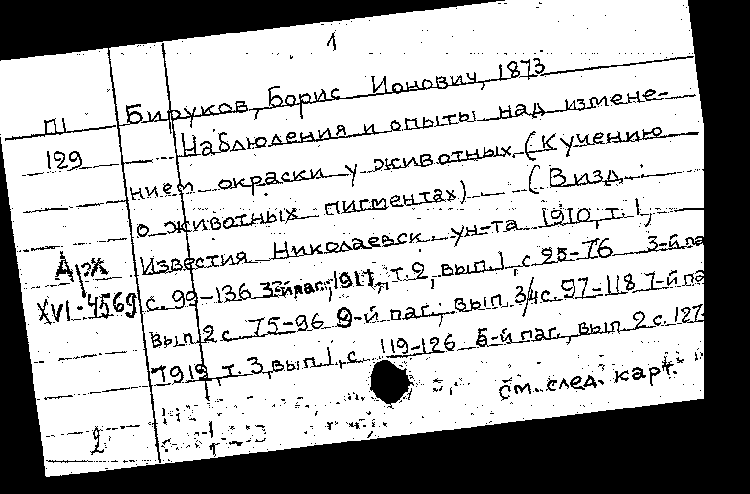 1
Бируков, Борис Ионович, 1873
П1
129
Наблюдения и опыты над измене-
нием окраски у животных. (К учению
о животных пигментах) (В изд.:
Известия Николаевск. ун-та 1910, т. 1,
Арх
XVI-4569
с. 99-136 3-й паг., 1911, т. 2, вып. 1, с. 25-76 3-й па
вып. 2 с. 75-96 9-й паг.; вып. 3/4 с. 97-118 7-й па
1912, т. 3, вып. 1, с 119-126 5-й паг., вып. 2 с. 127-
см. след. карт.
2